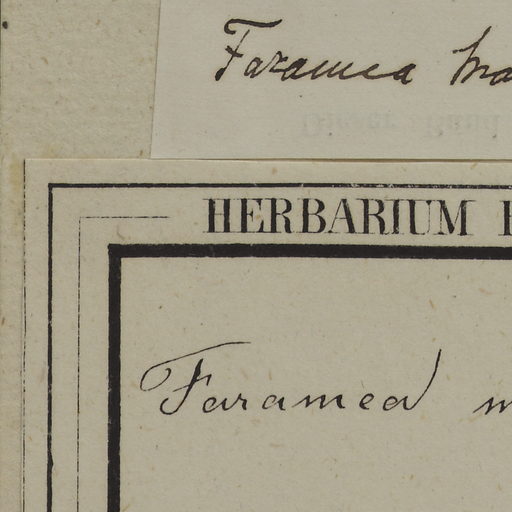 Faramea
HERBARIUM
Faramea